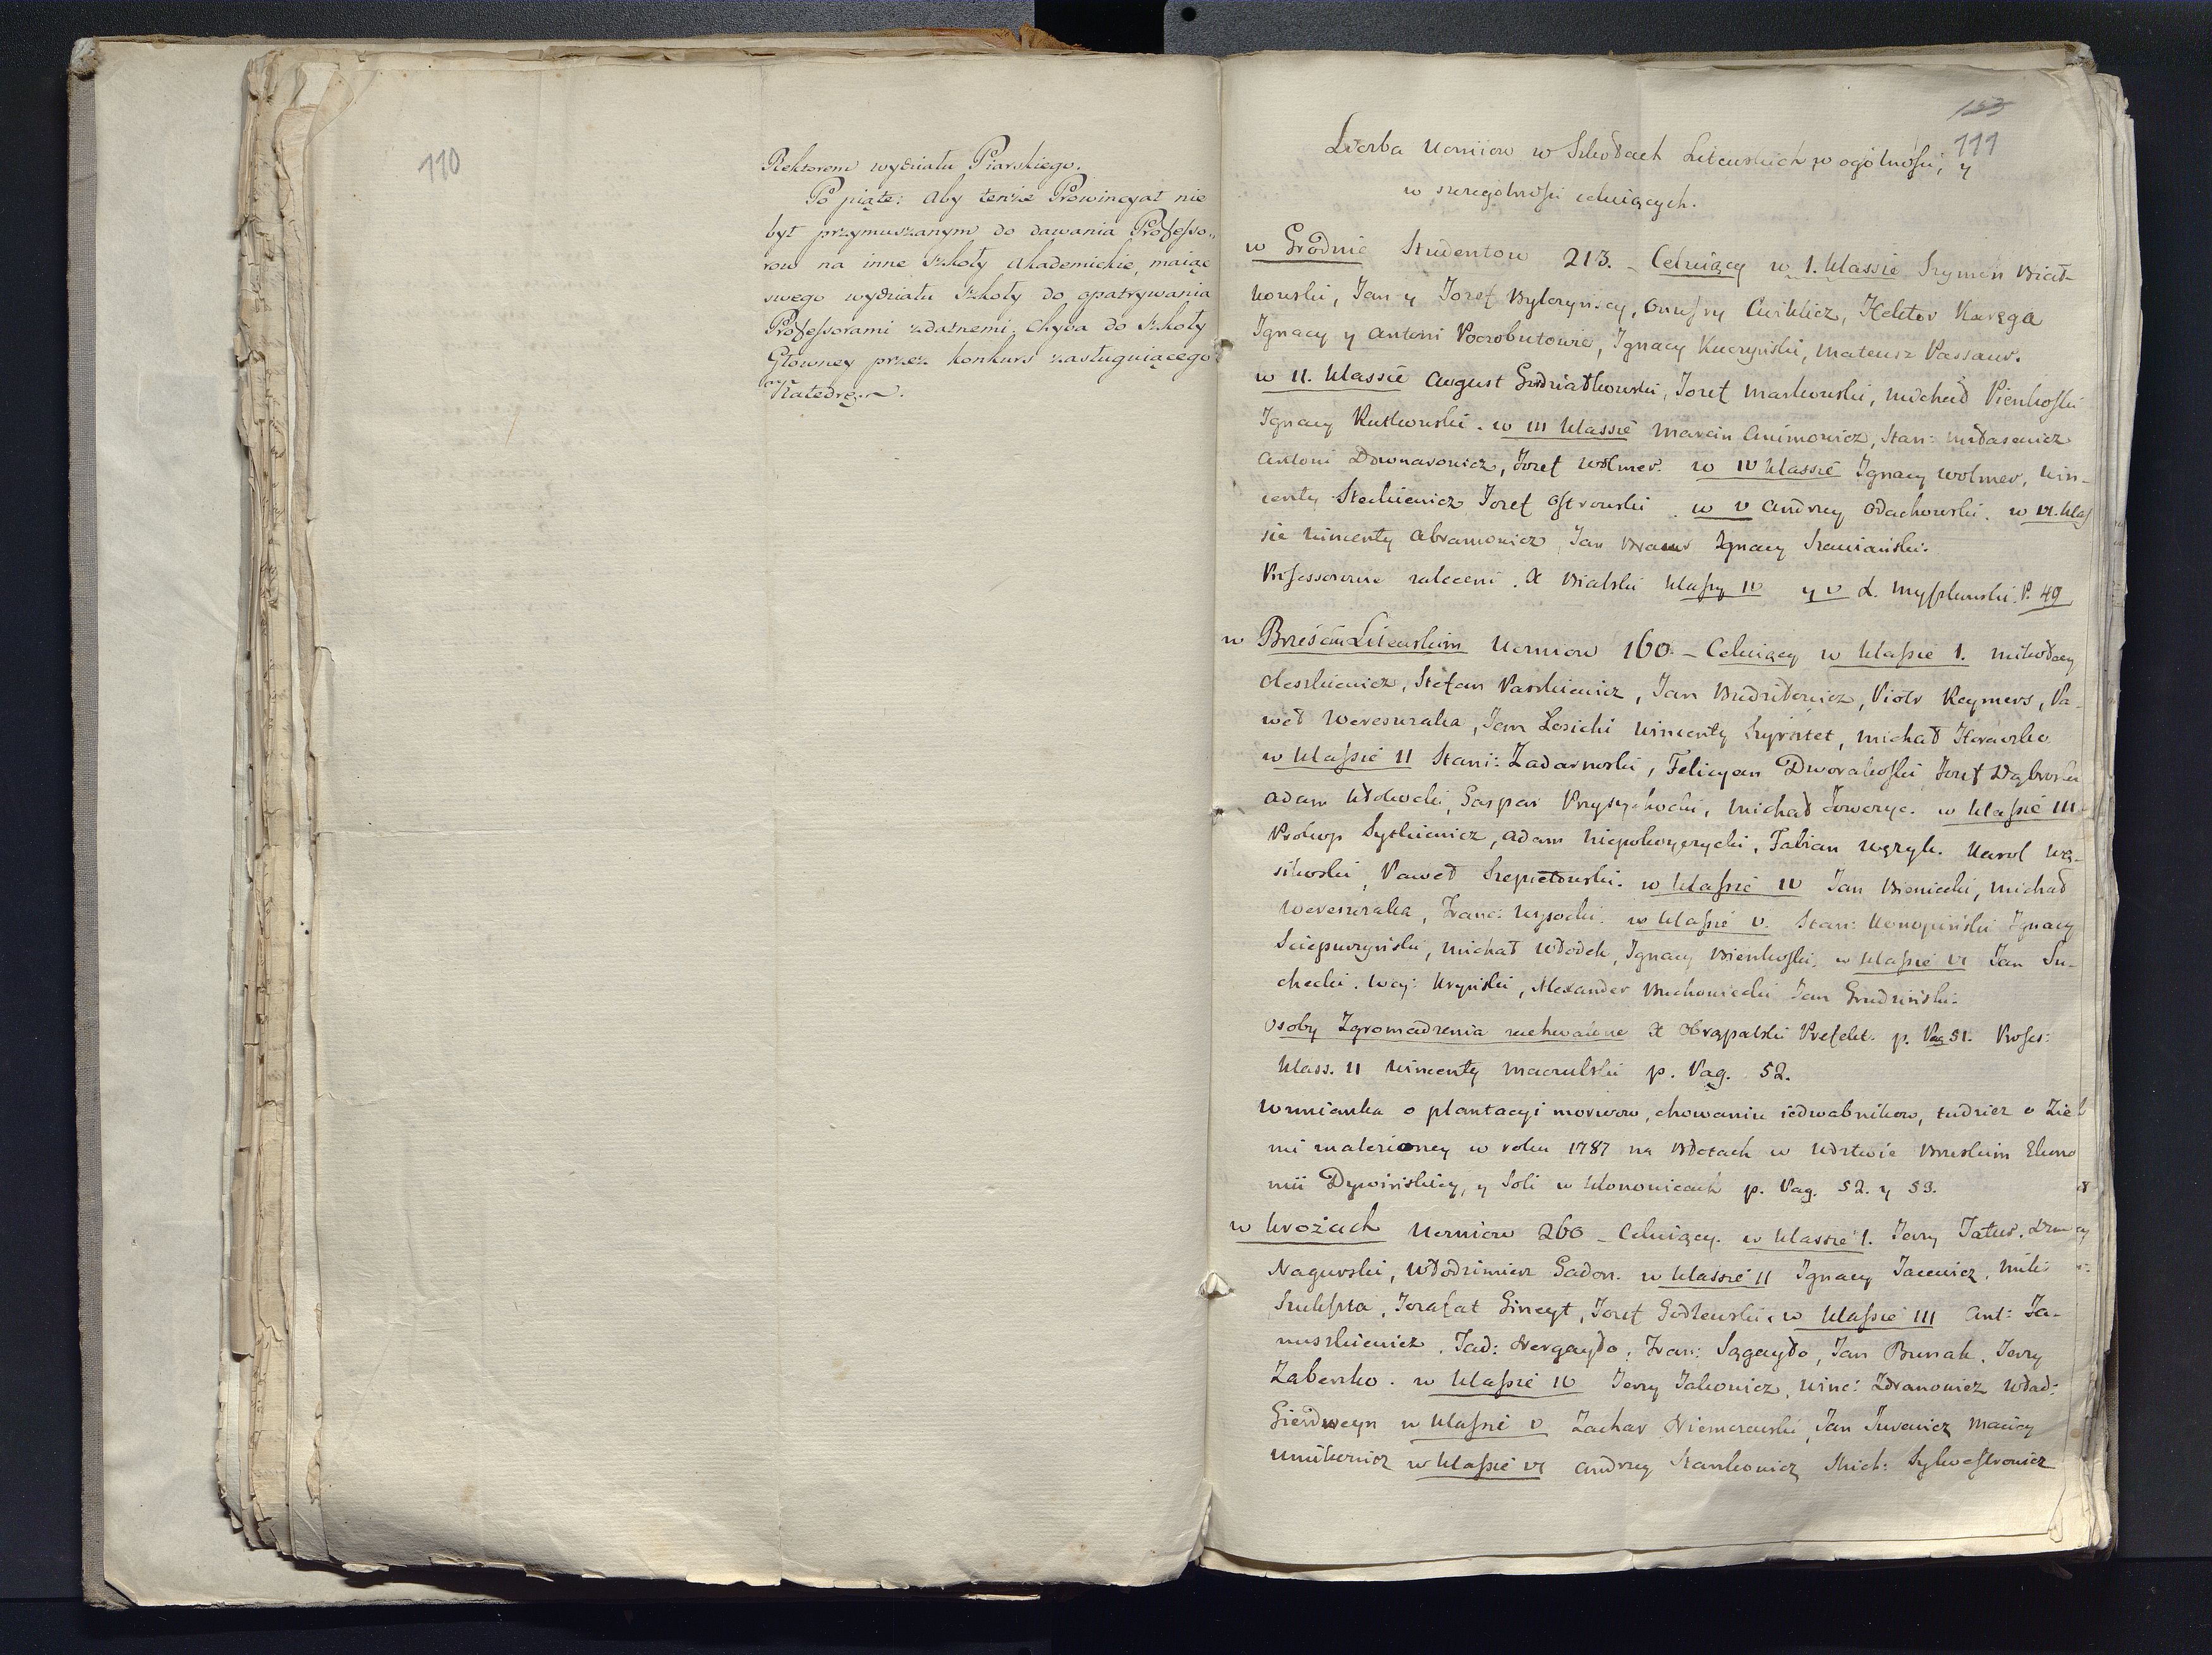 110
Rektorem wydziału Piarskiego.
Po piąte: Aby tenże Prowincyał nie
był przymuszanym do dawania Professo„
row na inne Szkoły Akademickie, maiąc
swego wydziału Szkoły do opatrywania
Professorami zdatnemi; Chyba do Szkoły
Głowney przez konkurs zasługuiącego
Katedrę.
153
111
Liczba Uczniow w Szkołach Litewskich w ogólnosci, y
w szczegolnosci celuiących.
w Grodnie Studentow 213. – Celuiący w 1. Klassie Szymon Biał-
kowski, Jan y Jozef Bylczyńscy, Onufry Ćwiklicz, Hektor Karęga
Ignacy y Antoni Poczobutowie, Ignacy Kuczyński, Mateusz Passaur.
w II. Klassie August Gwiazdkowski, Jozef Markowski, Michał Pienkoski
Ignacy Rutkowski. w III Klassie Marcin Animowicz, Stan: Midasewicz
Antoni Downarowicz, Jozef Wolmer. w IV Klassie Ignacy Wolmer, Win-
centy Steckiewicz Jozef Ostrowski. w V Andrzey Odachowski. w VI. Klas
sie Wincenty Abramowicz, Jan Ignacy Szaniawski.
Professorowie zaleceni. X Bialski Klassy IV y V X. Myszkowski. P. 49
w Brześciu Litewskim Uczniow 160. – Celuiący w Klassie 1. Mikołay
Oleszkiewicz, Stefan Paszkiewicz, Jan Budziłowicz, Piotr Reymers, Pa-
weł Wereszczaka, Jan Łosicki Wincenty Szyrtet, Michał
w Klassie II Stani: Zadarnoski, Felicyan Dworakoski, Jozef Dąbroski
Adam Wołodki, Gaspar Przysychocki, Michał Towczyc. w Klassie III
Prokop Sytkiewicz, Adam Niepokoyczycki, Fabian Węzyk. Karol Wą-
sikoski, Paweł Szepietowski. w Klassie IV Jan Bieniecki, Michał
Wereszczaka, Franc: Wysocki. w Klassie V. Stan: Konopiński Ignacy
Sciepuczyński, Michał Włodek, Ignacy Bienkoski. w Klassie VI Jan Su-
checki. Woy: Kryński, Alexander Buchowiecki Jan Grudziński.
Osoby Zgromadzenia zachwalone X Chrąpalski Prefekt. p. Pag 51. Profes:
Klass. II Wincenty Maczulski p. Pag. 52.
Wzmianka o plantacyi morwow, chowaniu iedwabnikow, tudzież o Zie
mi znalezioney w roku 1787 na Błotach w Wdztwie Brzeskim Ekono
mii Dywińskiey, y Soli w Kłonowicach p. Pag. 52. y 53.
w Krożach Uczniow 260 – Celuiący. w Klassie 1. Jerzy Jatur.
Nagurski, Włodzimierz Gadon. w Klassie II Ignacy Jacewicz, Mik:
Szukszta, Jozafat Gineyt, Jozef Godlewski. w Klassie III Ant: Ja-
nuszkiewicz. Tad: Nergayło. Fran: Sągayło, Jan Bunak. Jerzy
Zabersko. w Klassie IV Jerzy Jakowicz, Winc: Zdranowicz Wład:
Gierdweyn w Klassie V Zachar Niemczewski, Jan Jurewicz Maciey
Unikowicz w Klassie VI Andrzey Stankowicz Mich: Sylwestrowicz